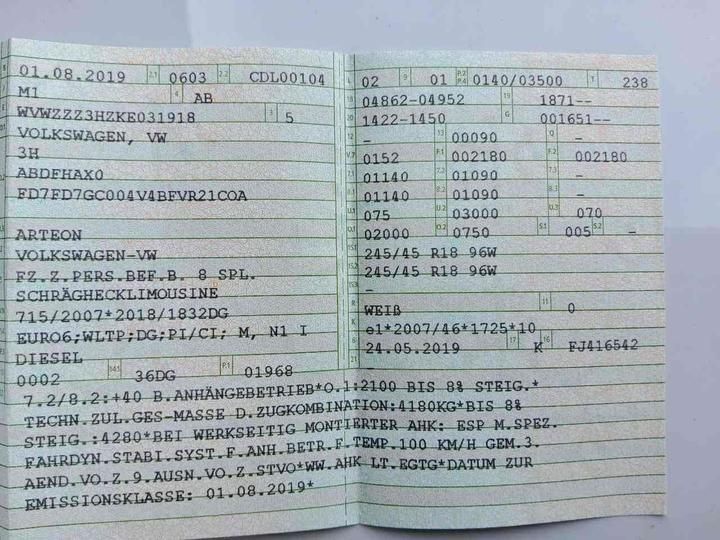 01.08.2019 2.1 0603 2.2 CDL00104
M1 4 AB
WVWZZZ3HZKE031918 3 5
VOLKSWAGEN, VW
3H
ABDFHAX0
FD7FD7GC004V4BFVR21COA
ARTEON
VOLKSWAGEN-VW
FZ.Z.PERS.BEF.B. 8 SPL.
SCHRÄGHECKLIMOUSINE
715/2007*2018/1832DG
EURO6;WLTP;DG;PI/CI; M, N1 I
DIESEL
0002 14.1 36DG P.1 01968
L 02 9 01 P.2 P.4 0140/03500 T 238
18 04862-04952 19 1871--
20 1422-1450 G 001651--
12 - 13 00090 Q -
V.7 0152 F.1 002180 F.2 002180
7.1 01140 7.2 01090 7.3 -
8.1 01140 8.2 01090 8.3 -
U.1 075 U.2 03000 U.3 070
O.1 02000 O.2 0750 S.1 005 S.2 -
15.1 245/45 R18 96W
15.2 245/45 R18 96W
15.3 -
R WEIß 11 0
K e1*2007/46*1725*10
6 24.05.2019 17 K 16 FJ416542
21 -
7.2/8.2:+40 B.ANHÄNGEBETRIEB*O.1:2100 BIS 8% STEIG.*
TECHN.ZUL.GES-MASSE D.ZUGKOMBINATION:4180KG*BIS 8%
STEIG.:4280*BEI WERKSEITIG MONTIERTER AHK: ESP M.SPEZ.
FAHRDYN.STABI.SYST.F.ANH.BETR.F.TEMP.100 KM/H GEM.3.
AEND.VO.Z.9.AUSN.VO.Z.STVO*WW.AHK LT.EGTG*DATUM ZUR
EMISSIONSKLASSE: 01.08.2019*